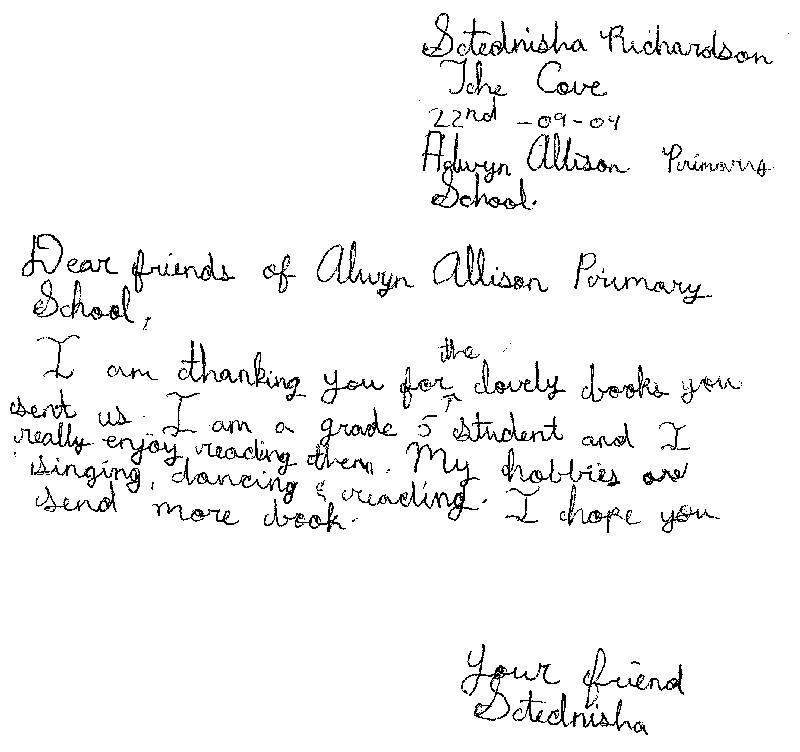 Sctednisha Richardson
The Cove
22nd -09-04
Adwyn Allison Primary
School.
Dear friends of Alwyn Allison Primary
School,
I am thanking you for the lovely books you
sent us. I am a grade 5 student and I
really enjoy reading them. My hobbies are
singing, dancing & reading. I hope you
send more book.
Your friend
Sctednisha